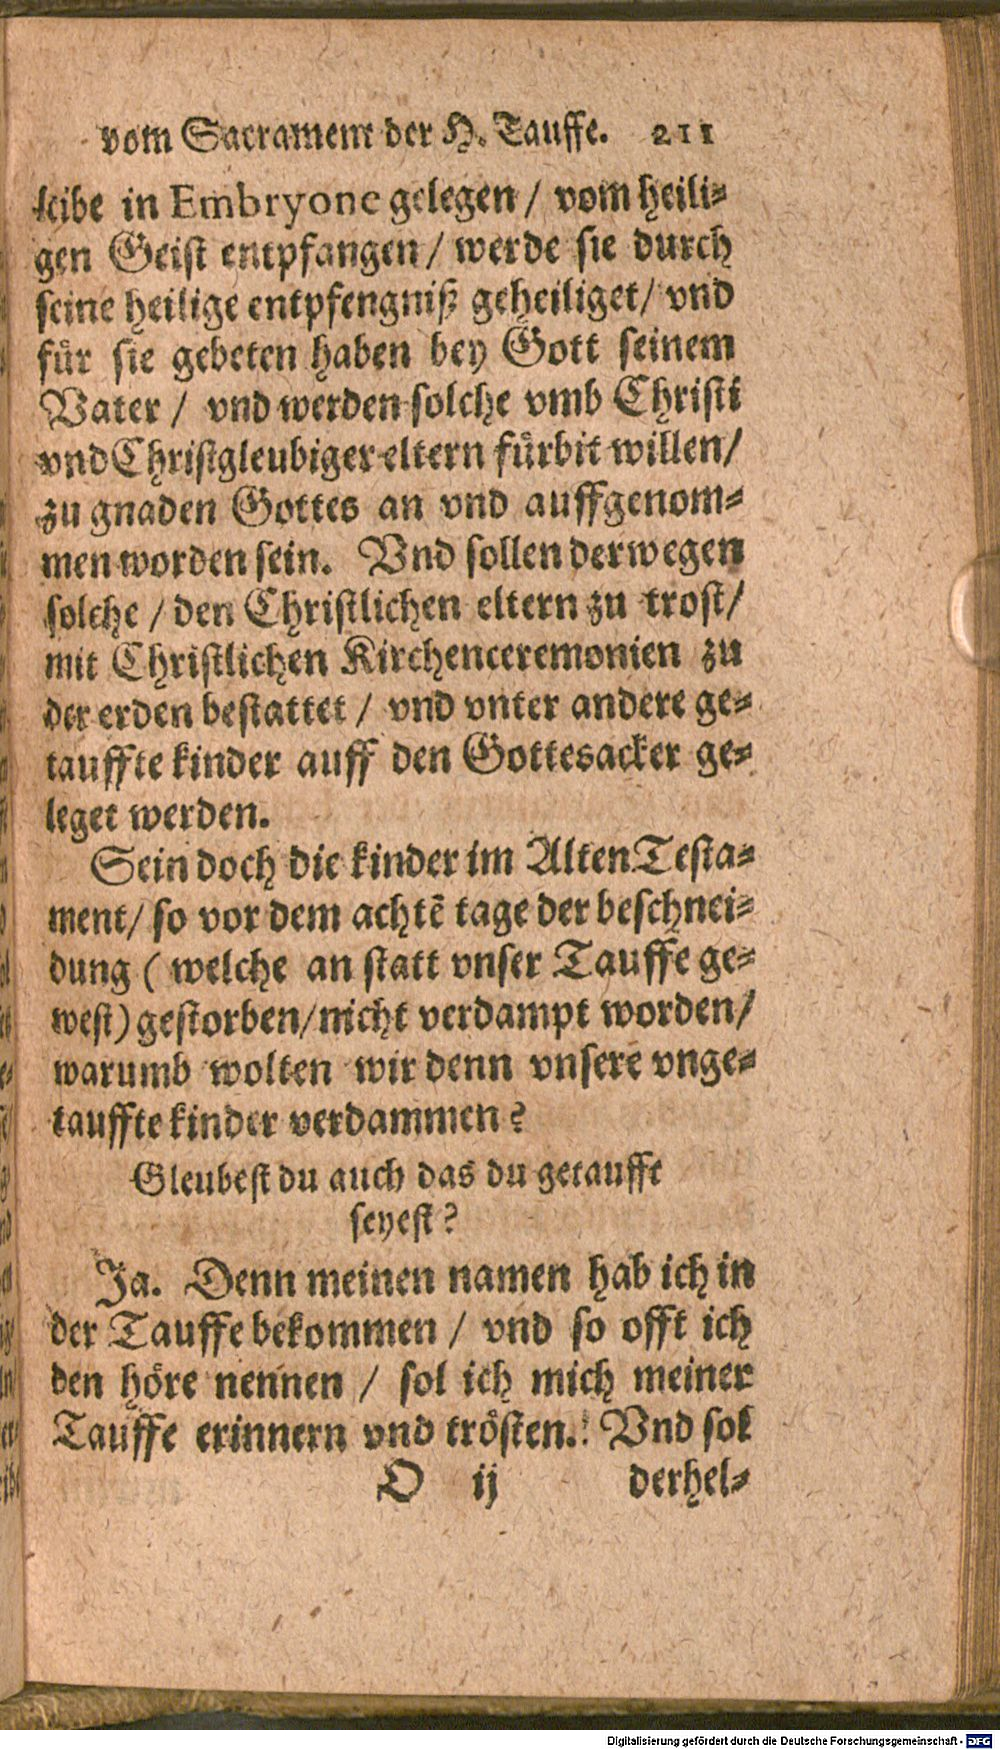 vom Sacrament der H. Tauffe. 211
leibe in Embryone gelegen / vom heili⸗
gen Geist entpfangen / werde sie durch
seine heilige entpfengniß geheiliget / vnd
für sie gebeten haben bey Gott seinem
Vater / vnd werden solche vmb Christi
vnd Christgleubiger eltern fürbit willen /
zu gnaden Gottes an vnd auffgenom⸗
men worden sein. Vnd sollen derwegen
solche / den Christlichen eltern zu trost /
mit Christlichen Kirchenceremonien zu
der erden bestattet / vnd vnter andere ge⸗
tauffte kinder auff den Gottesacker ge⸗
leget werden.
Sein doch die kinder im Alten Testa⸗
ment / so vor dem achtẽ tage der beschnei⸗
dung ( welche an statt vnser Tauffe ge⸗
west ) gestorben / nicht verdampt worden /
warumb wolten wir denn vnsere vnge⸗
tauffte kinder verdammen ?
Gleubest du auch das du getaufft
seyest ?
Ja. Denn meinen namen hab ich in
der Tauffe bekommen / vnd so offt ich
den höre nennen / sol ich mich meiner
Tauffe erinnern vnd trösten. Vnd sol
O ij derhel⸗
Digitalisierung gefördert durch die Deutsche Forschungsgemeinschaft - DFG